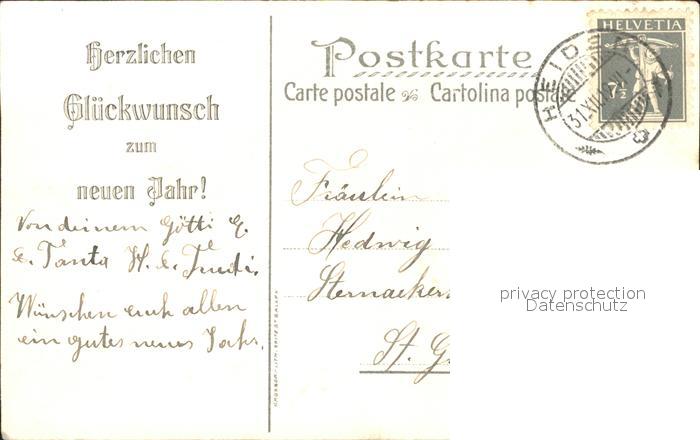 Herzlichen
Glückwunsch
zum
neuen Jahr!
Von deinem Götti E.
& Tanta H. &
Wünschen euch allen
ein gutes neues Jahr.
Postkarte
Carte postale Cartolina postale
HELVETIA
7½
HEIDEN
31.XII
Fräulein
Hedwig
Sternacker
St. G
privacy protection
Datenschutz